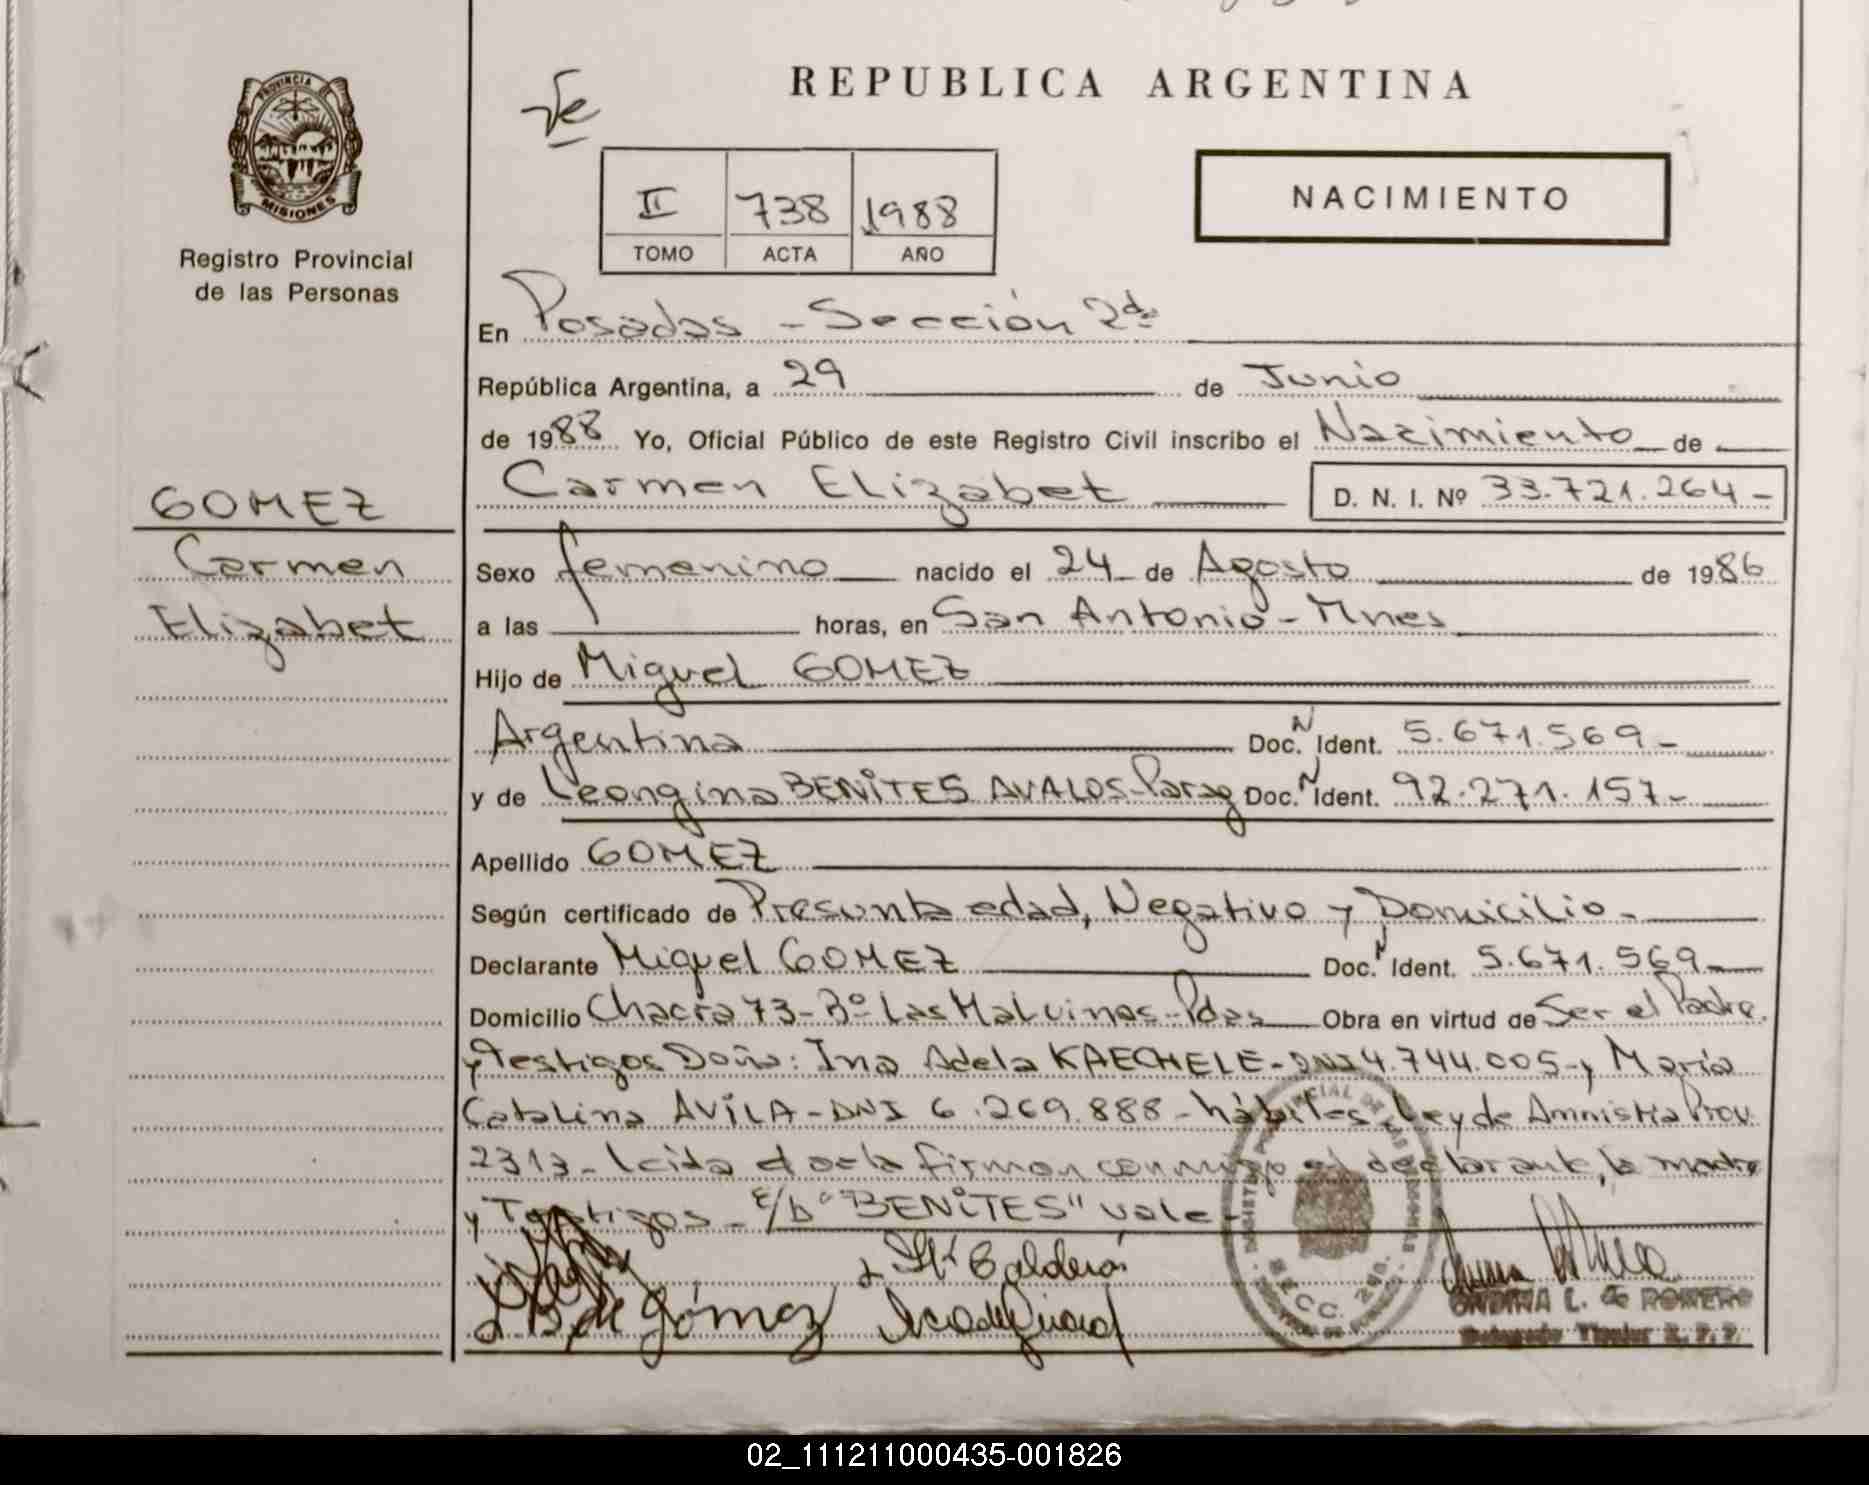 PROVINCIA DE
MISIONES
Registro Provincial
de las Personas
GOMEZ
Carmen
Elizabet
REPUBLICA ARGENTINA
II 738 1988
TOMO ACTA AÑO
NACIMIENTO
En Posadas - Sección 2da
República Argentina, a 29 de Junio
de 1988 Yo, Oficial Público de este Registro Civil inscribo el Nacimiento de
Carmen Elizabet D. N. I. Nº 33.721.264-
Sexo femenino nacido el 24 de Agosto de 1986
a las horas, en San Antonio - Mnes
Hijo de Miguel GOMEZ
Argentina Doc. N Ident. 5.671.569-
y de Leongina BENITES AVALOS-Parag Doc. N Ident. 92.271.157-
Apellido GOMEZ
Según certificado de Presunta edad, Negativo y Domicilio.
Declarante Miguel GOMEZ Doc. N Ident. 5.671.569-
Domicilio Chacra 73-Bº Las Malvinas-Pdas Obra en virtud de Ser el Padre.
y Testigos Doña: Ina Adela KAECHELE-DNI 4.744.005-y María
Catalina AVILA-DNI 6.269.888-hábiles. Ley de Amnistia Prov.
2313-Leida el acta firman conmigo el declarante, la madre
y Testigos - E/b "BENITES" vale-
Calderón
B. de Gómez
ONDINA L. de ROMERO
Delegada Titular R. P. P.
02_111211000435-001826